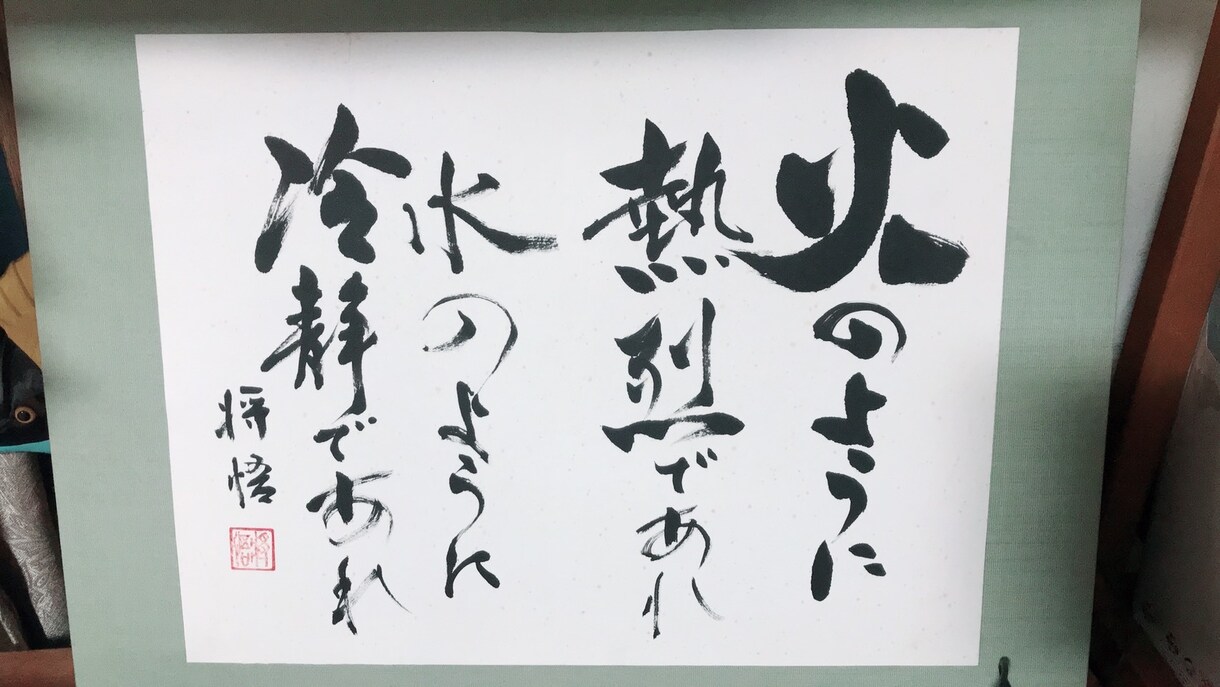 火のように
熱烈であれ
水のように
冷静であれ
将悟